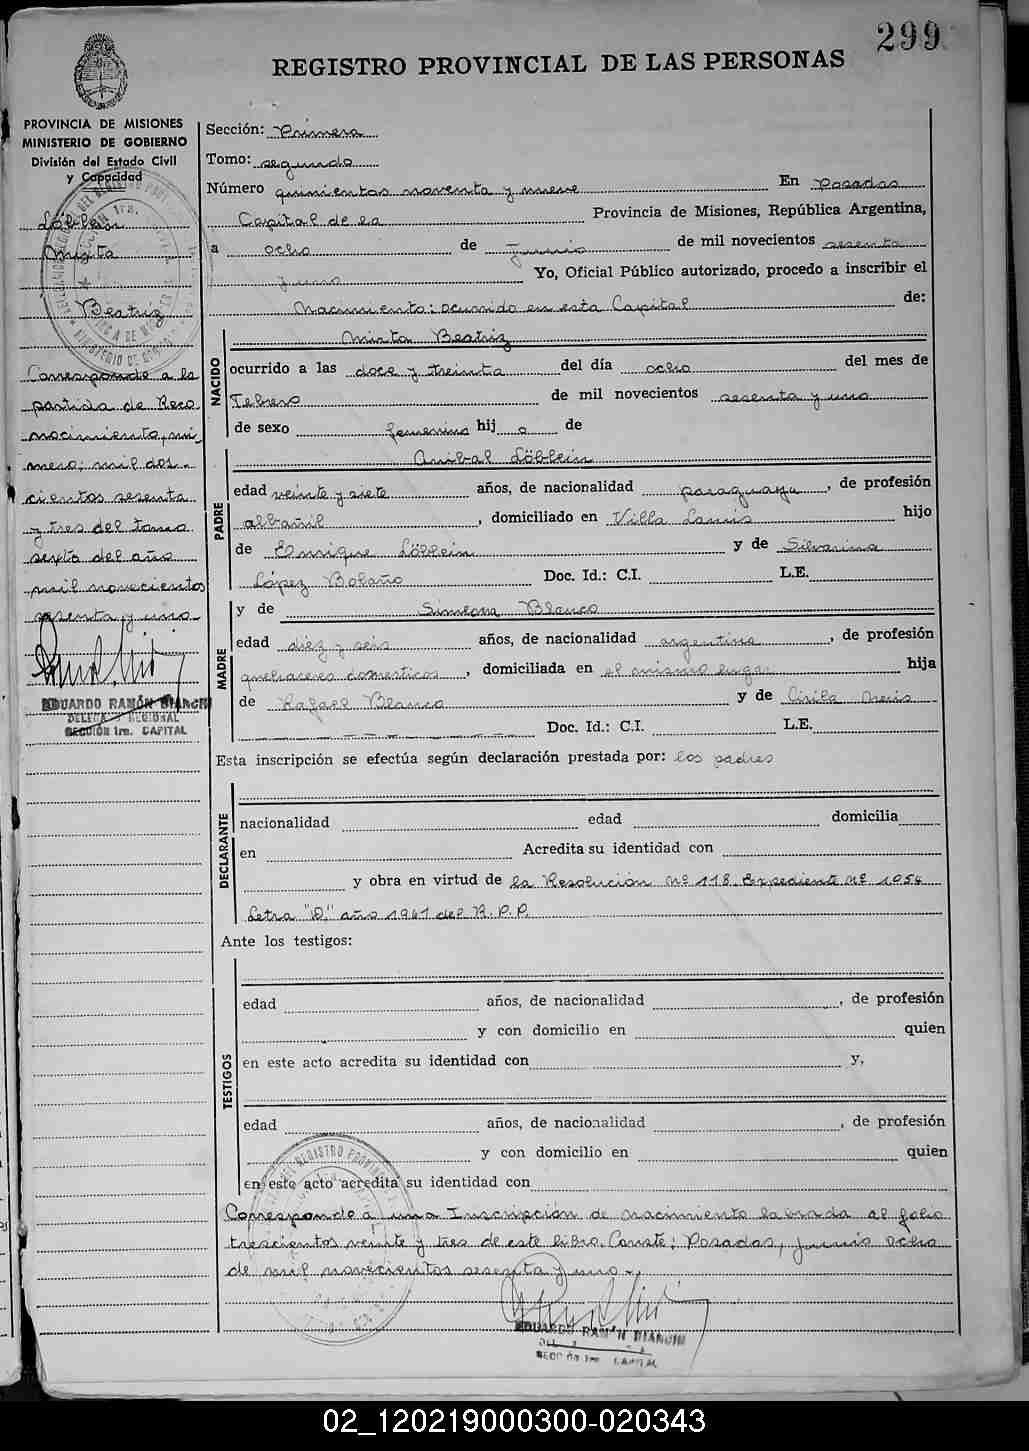 299
REGISTRO PROVINCIAL DE LAS PERSONAS
PROVINCIA DE MISIONES
MINISTERIO DE GOBIERNO
División del Estado Civil
y Capacidad
Löblein
Mirta
Beatriz
Corresponde a la
partida de Reco
nocimiento, nú_
mero; mil dos-
cientos sesenta
y tres del tomo
sexto del año
mil novecientos
sesenta y uno-
EDUARDO RAMÓN BIANCHI
DELEGA REGIONAL
SECCIÓN 1ra. CAPITAL
Sección: Primera
Tomo: segundo
Número quinientos noventa y nueve En Posadas
Capital de la Provincia de Misiones, República Argentina,
a ocho de junio de mil novecientos sesenta
y uno Yo, Oficial Público autorizado, procedo a inscribir el
Nacimiento: ocurrido en esta Capital de:
NACIDO
Mirta Beatriz
ocurrido a las doce y treinta del día ocho del mes de
Febrero de mil novecientos sesenta y uno
de sexo femenino hij a de
PADRE
Anibal Löblein
edad veinte y siete años, de nacionalidad paraguaya, de profesión
albañil, domiciliado en Villa Lanús hijo
de Enrique Löblein y de Silvarina
López Bolaño Doc. Id.: C.I. L.E.
MADRE
y de Simeona Blanco
edad diez y seis años, de nacionalidad argentina, de profesión
quehaceres domesticos, domiciliada en el mismo lugar hija
de Rafael Blanco y de Cirila
Doc. Id.: C.I. L.E.
Esta inscripción se efectúa según declaración prestada por: los padres
DECLARANTE
nacionalidad edad domicilia
en Acredita su identidad con
y obra en virtud de la Resolución Nº 118. Expediente Nº 1054
Letra "D." año 1961 del R.P.P.
Ante los testigos:
TESTIGOS
edad años, de nacionalidad , de profesión
y con domicilio en quien
en este acto acredita su identidad con y,
edad años, de nacionalidad , de profesión
y con domicilio en quien
en este acto acredita su identidad con
Corresponde a una Inscripción de nacimiento labrada al folio
trescientos veinte y tres de este libro. Conste: Posadas, junio ocho
de mil novecientos sesenta y uno-.
EDUARDO RAMÓN BIANCHI
SECCIÓN 1ra CAPITAL
02_120219000300-020343